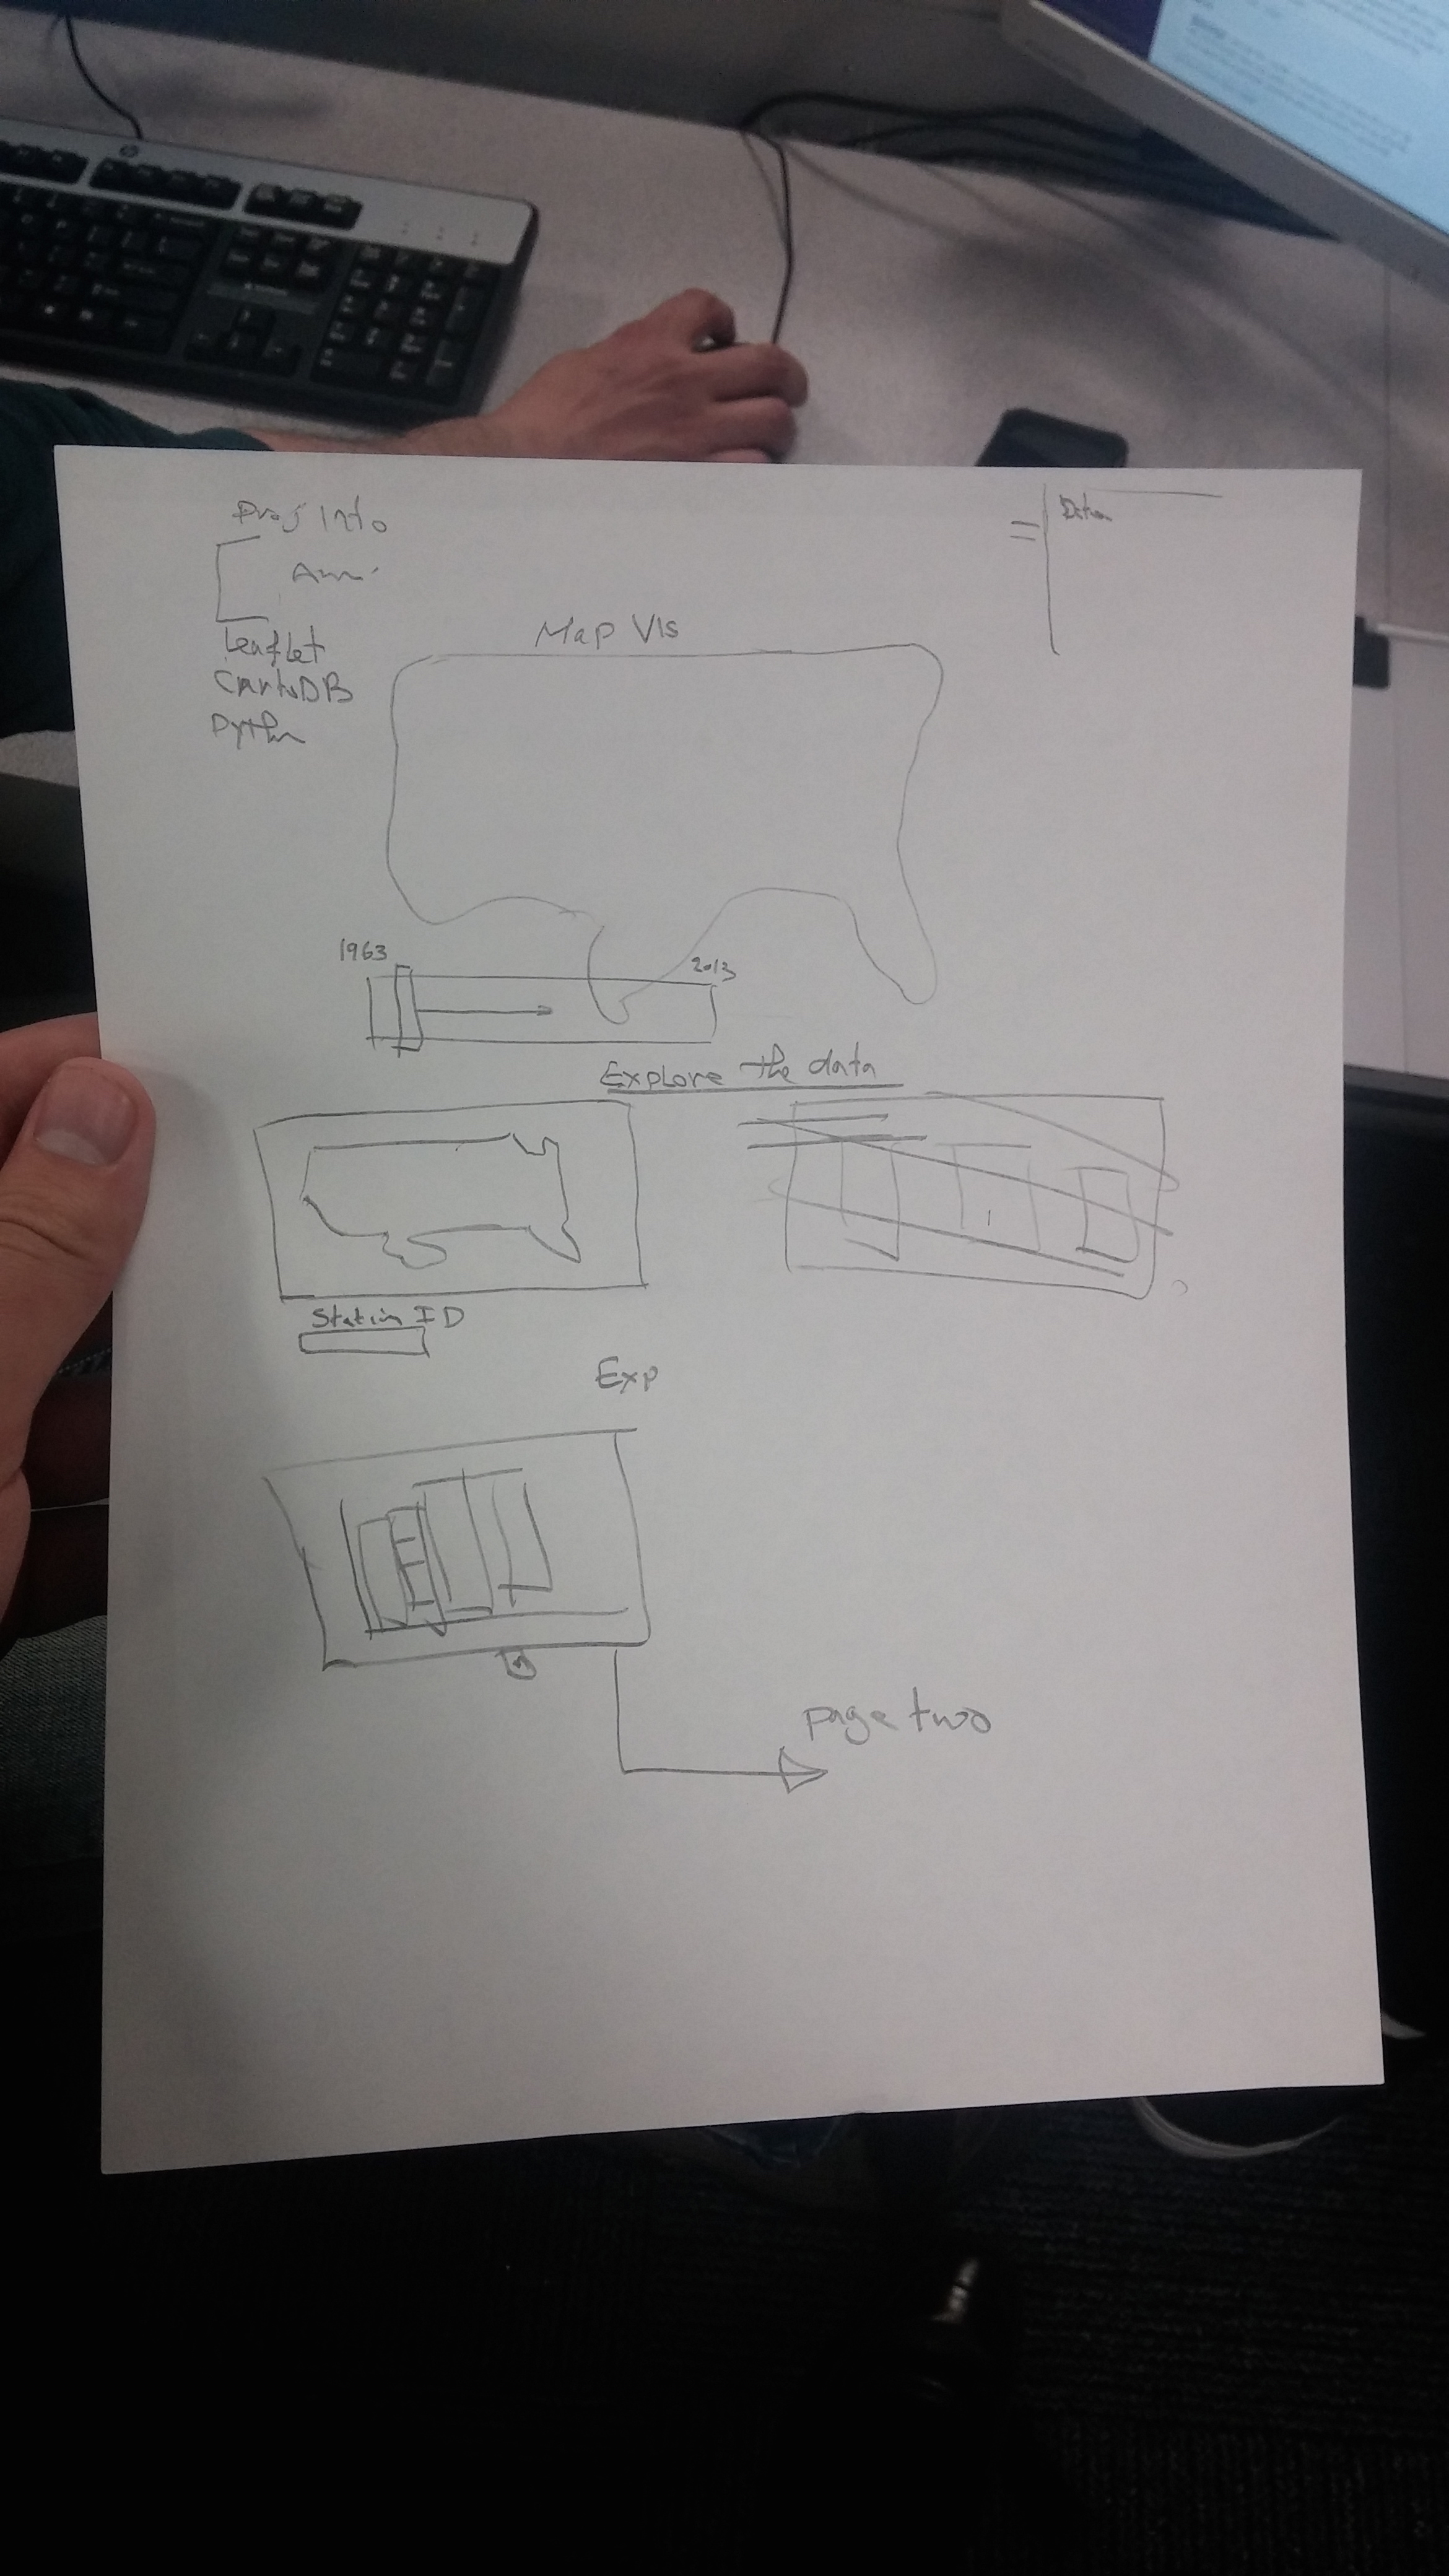 Proj Info
Leaflet
CartoDB
Python
Map Vis
1963
2013
Explore the data
Station ID
Exp
page two